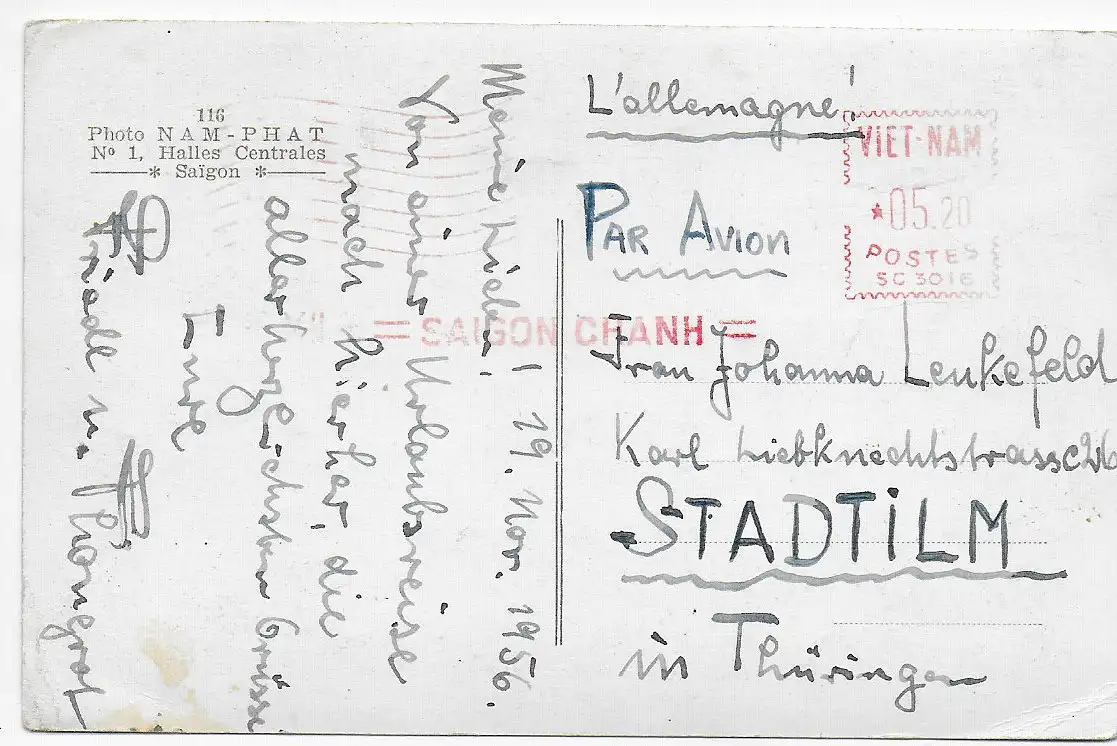 116
Photo NAM-PHAT
Nº 1, Halles Centrales
* Saïgon *
Meine Lieben! 19. Nov. 1956.
Von einer Urlaubsreise
nach hierher, die
allerherzlichsten Grüsse
Eure
Friedl u.
L'allemagne!
VIET-NAM
*05.20
POSTES
SC 3016
PAR AVION
= SAIGON CHANH =
Frau Johanna Leukefeld
Karl Liebknechtstrasse 26
STADTiLM
in Thüringen